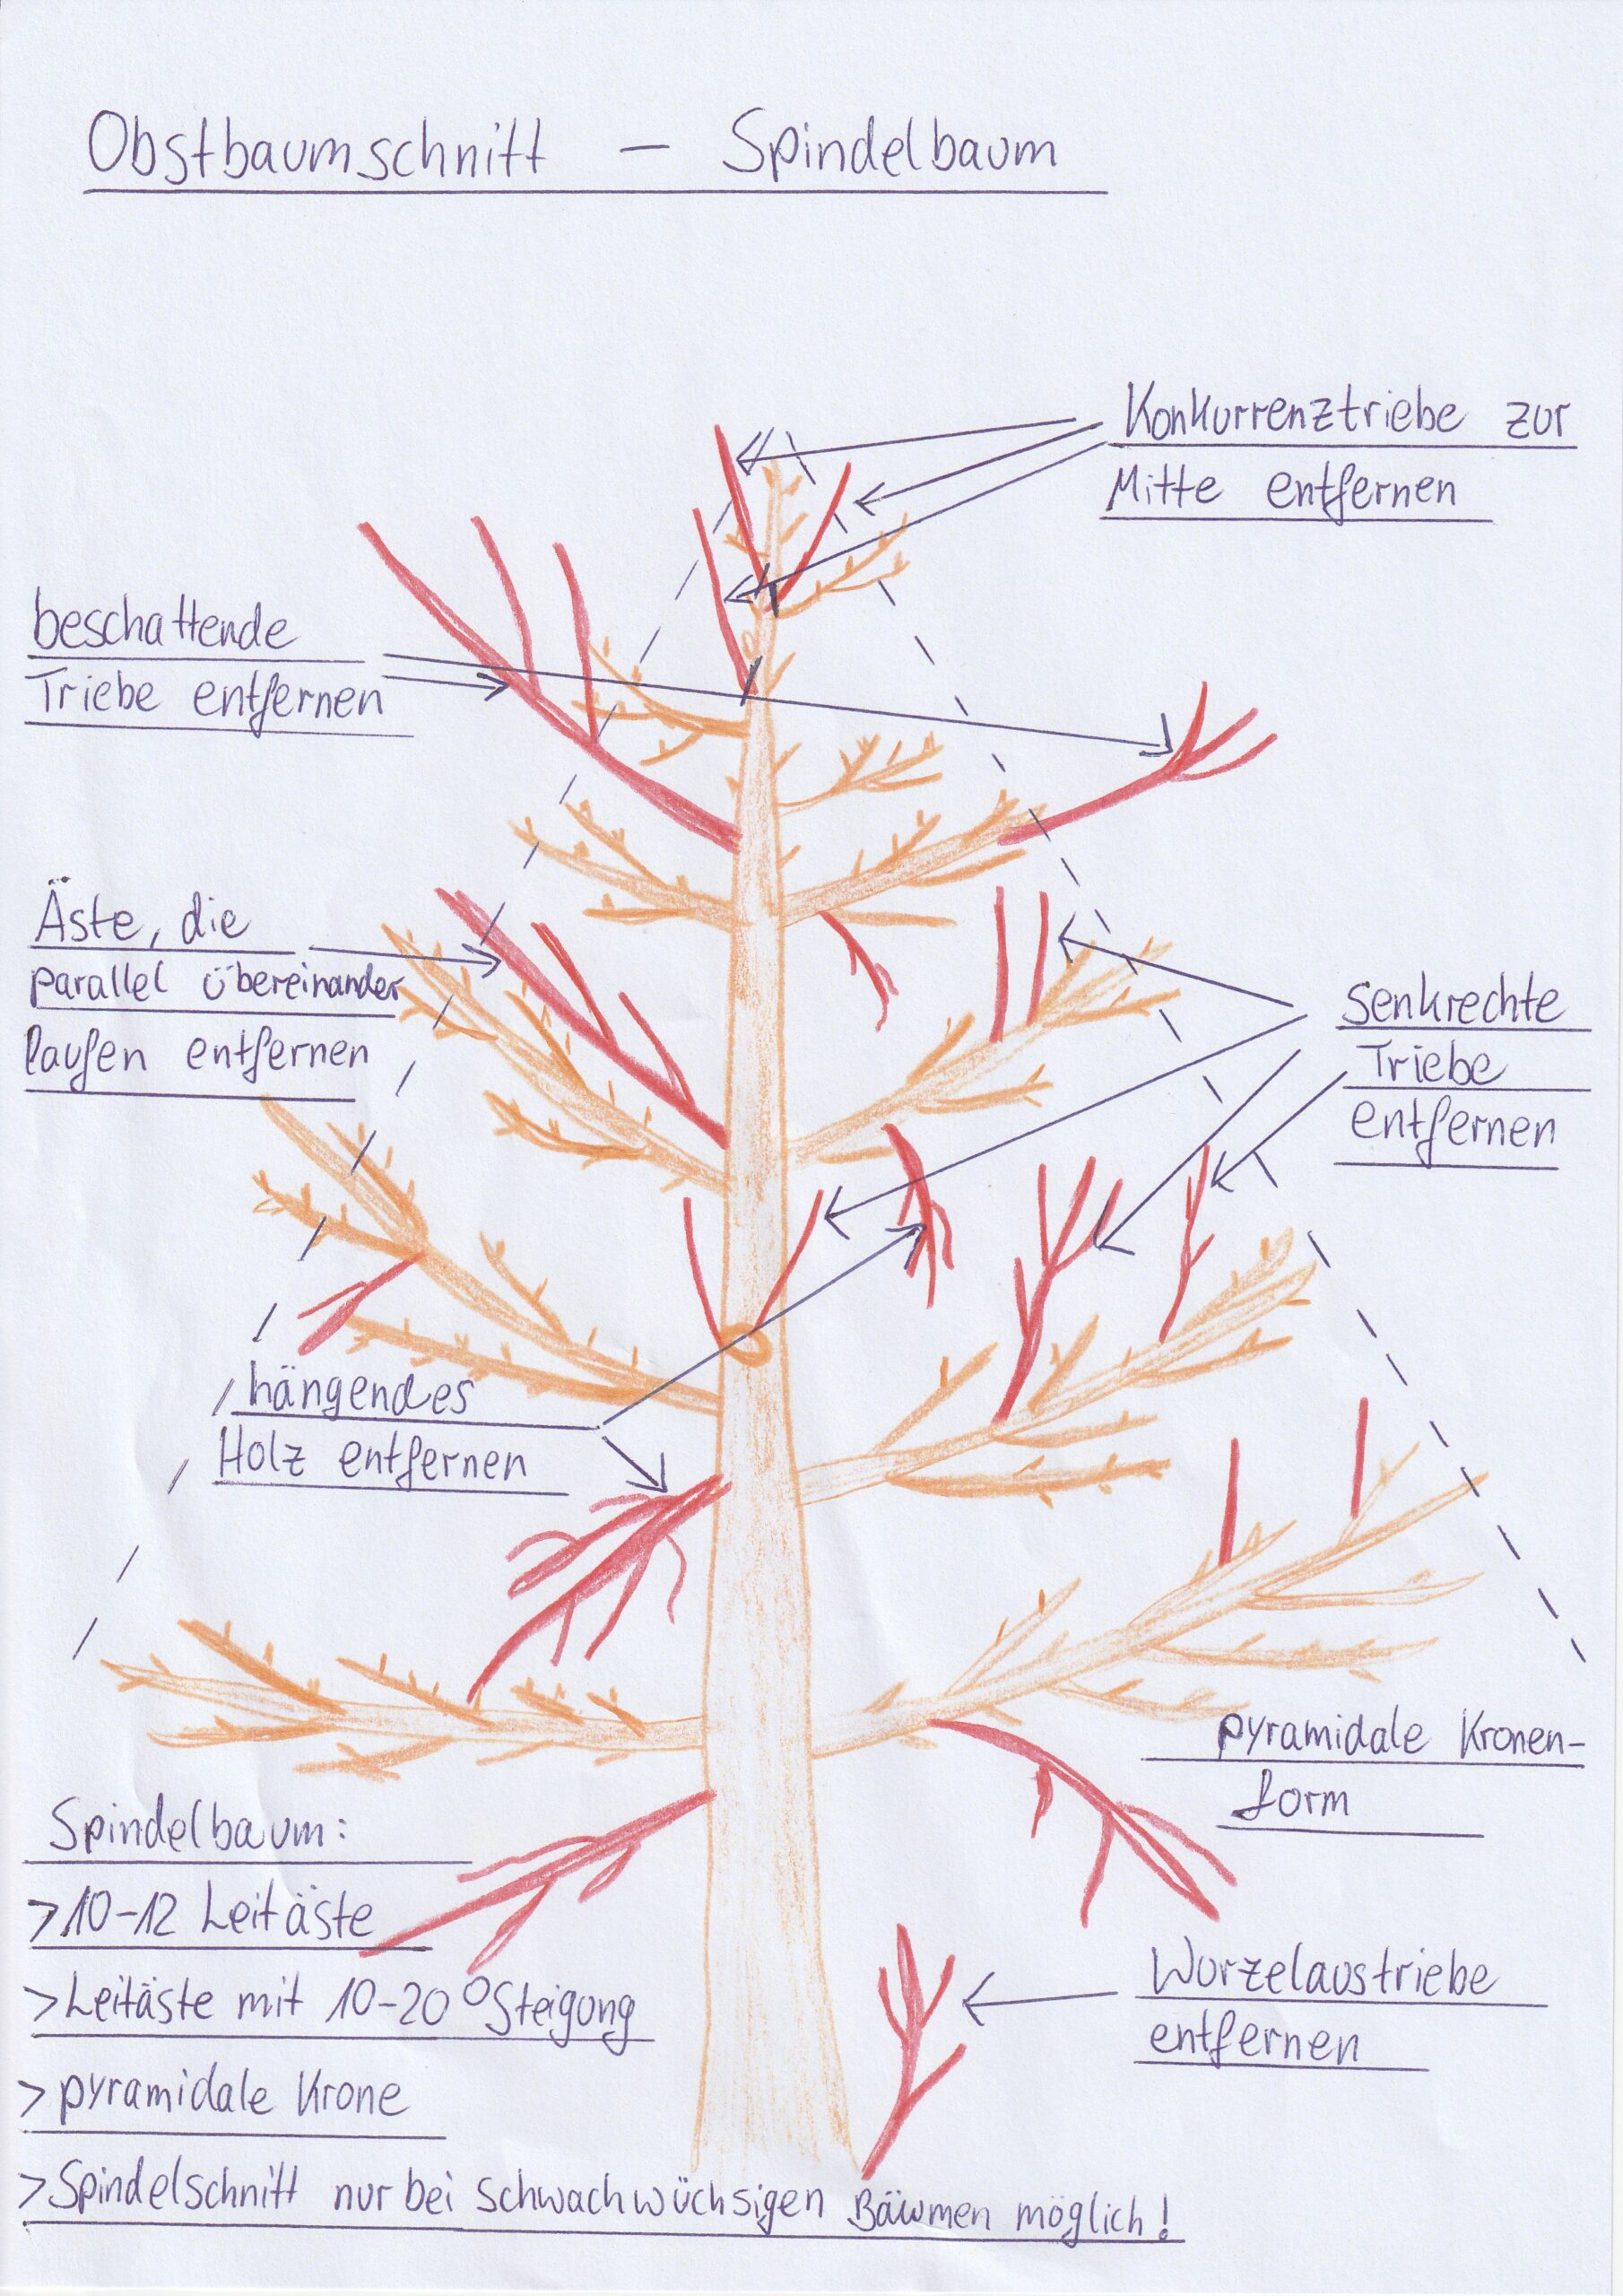 Obstbaumschnitt – Spindelbaum
Konkurrenztriebe zur
Mitte entfernen
beschattende
Triebe entfernen
Äste, die
parallel übereinander
laufen entfernen
senkrechte
Triebe
entfernen
hängendes
Holz entfernen
pyramidale Kronen-
form
Spindelbaum:
>10-12 Leitäste
>Leitäste mit 10-20° Steigung
>pyramidale Krone
>Spindelschnitt nur bei schwachwüchsigen Bäumen möglich!
Wurzelaustriebe
entfernen